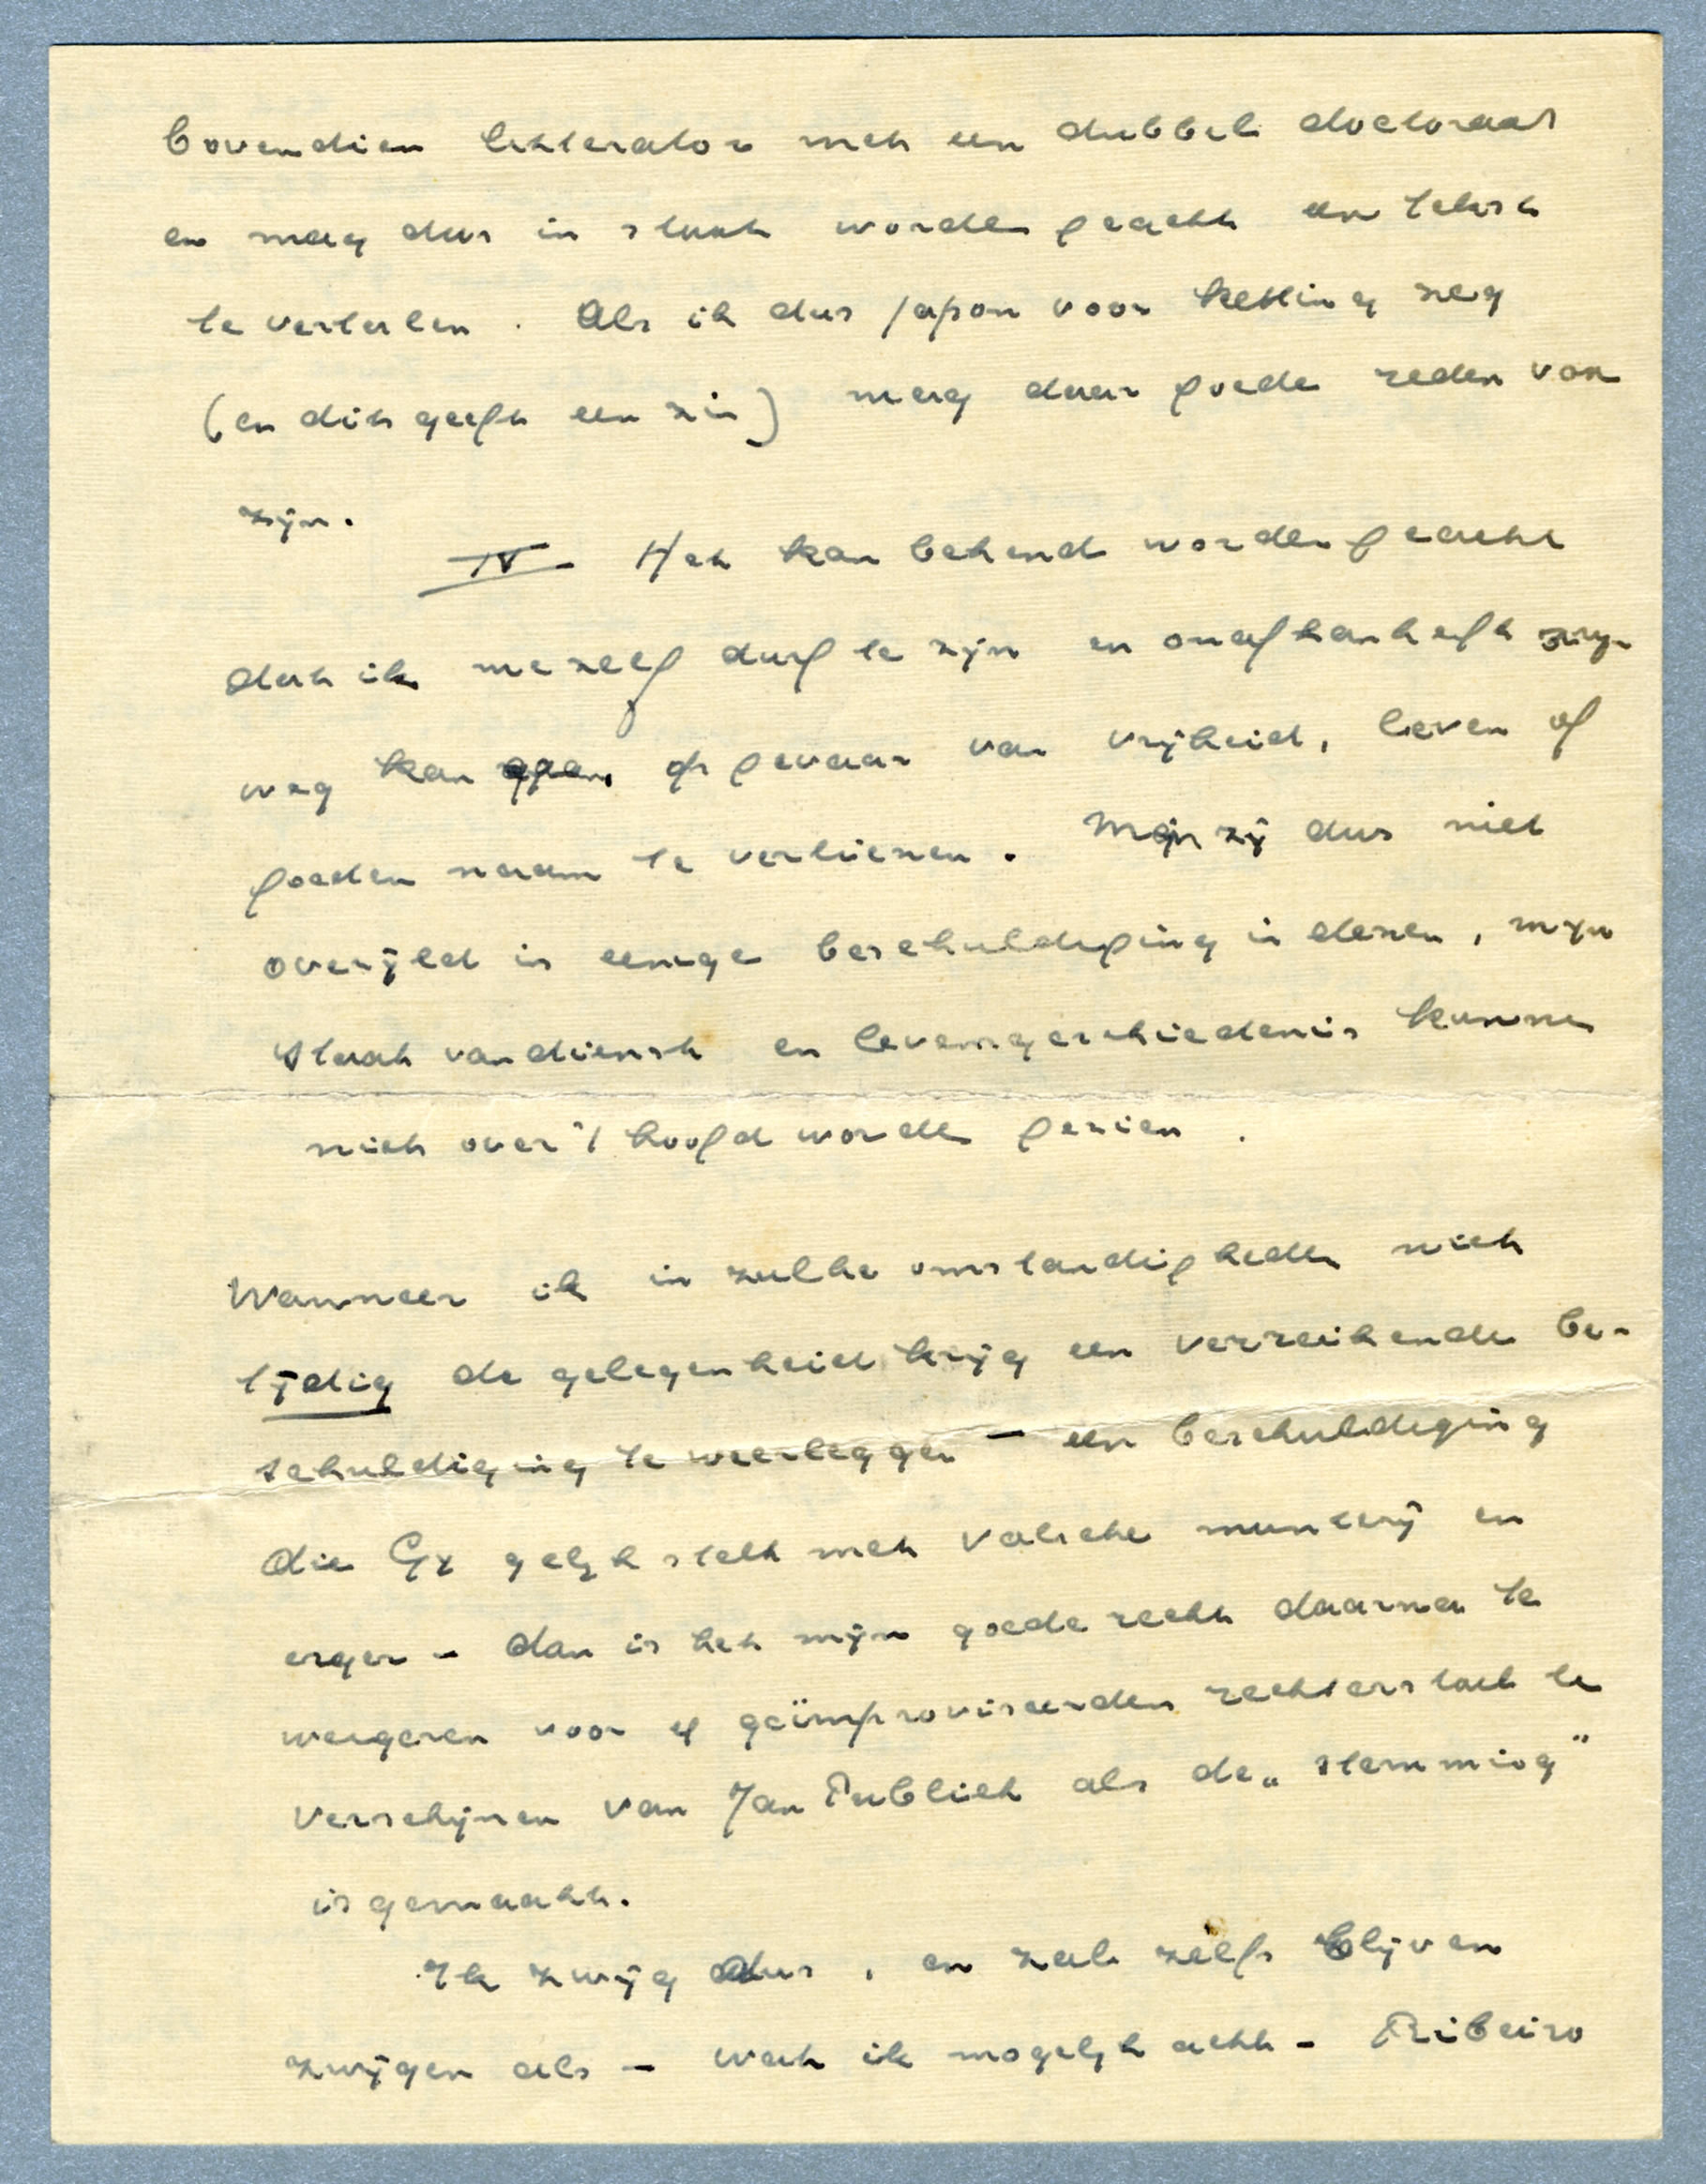 bovendien litterator met een dubbel doctoraat
en mag dus in staat worden geacht een tekst
te vertalen. Als ik dus japon voor ketting zeg
(en dit geeft een zin) mag daar goede reden van
zijn.
IV Het kan bekend worden geacht
dat ik mezelf durf te zijn en onafhankelijk mijn
weg kan gaan op gevaar van vrijheid, leven of
goeden naam te verliezen. Men zij dus niet
overijld in eenige beschuldiging in dezen, mijn
staat van dienst en levensgeschiedenis kunnen
niet over 't hoofd worden gezien.
Wanneer ik in zulke omstandigheden niet
tijdig de gelegenheid krijg een verreikende be-
schuldiging te weerleggen – een beschuldiging
die Gy gelijk stelt met valsche munterij en
erger – dan is het mijn goede recht daarna te
weigeren voor geïmproviseerden rechterstoel te
verschijnen van Jan Publiek als de „stemming"
is gemaakt.
Ik zwijg dus, en zal zelfs blijven
zwijgen als – wat ik mogelijk acht – Ribeiro